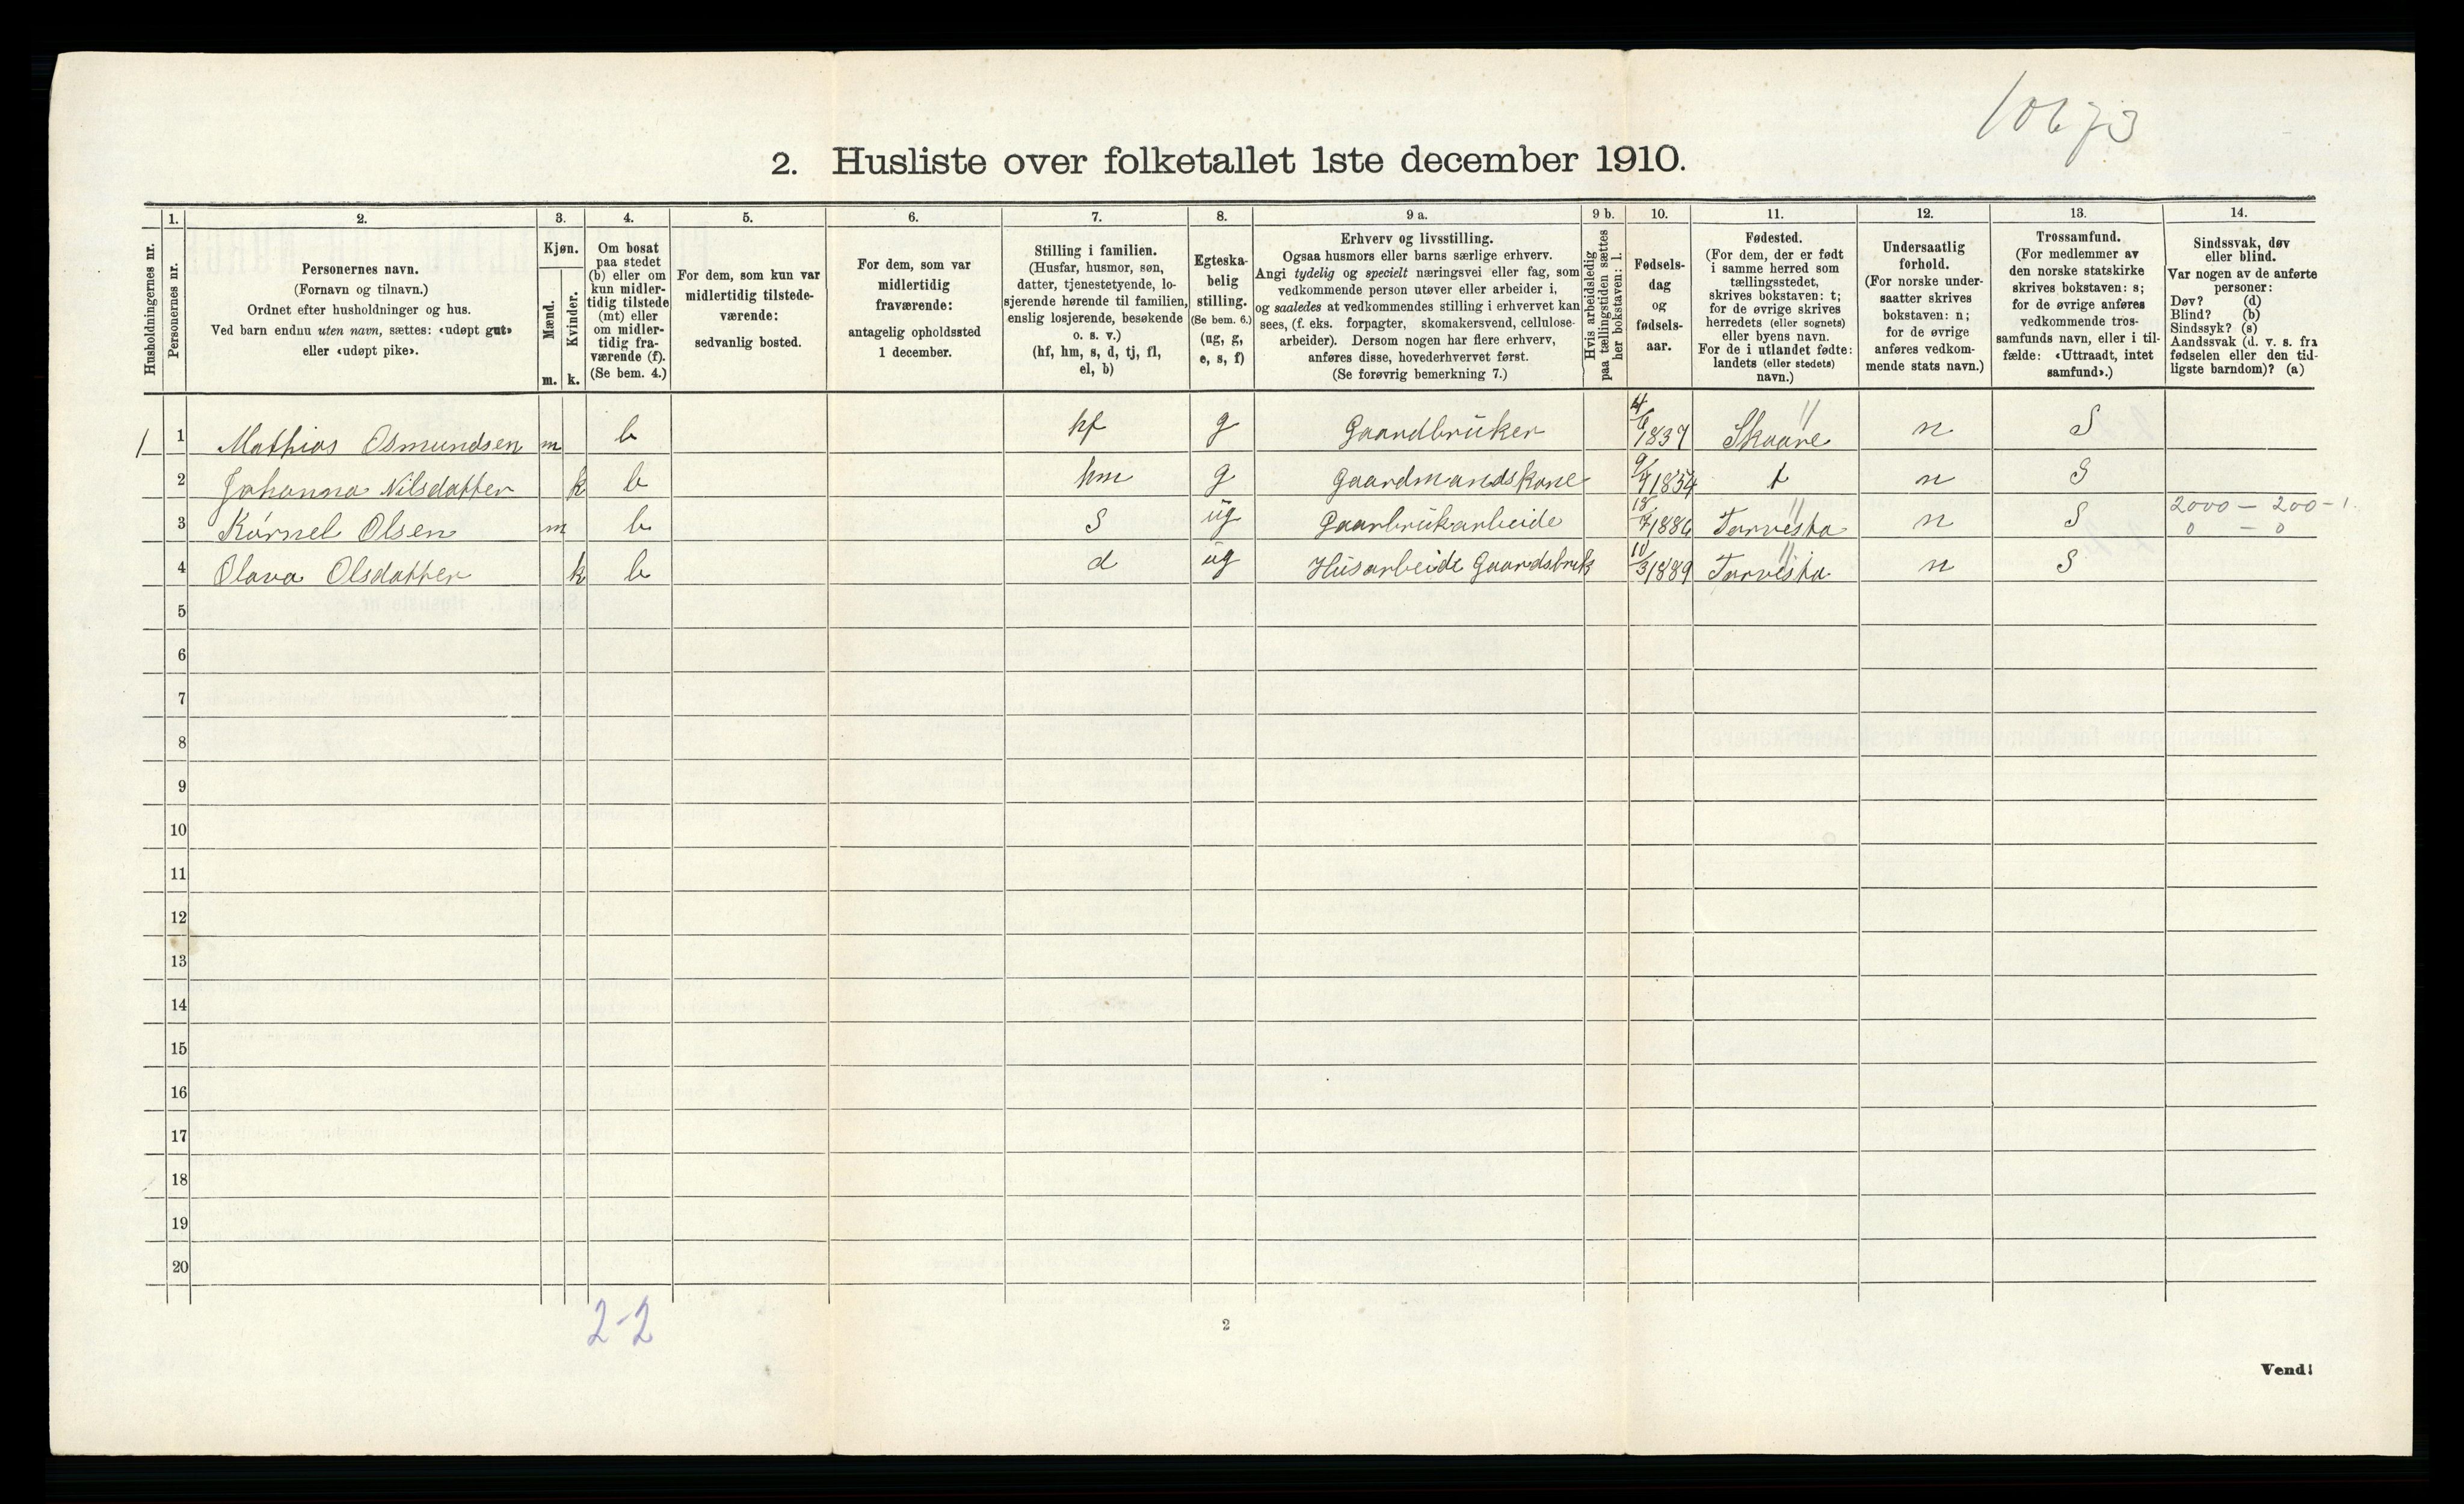 10673
2. Husliste over folketallet 1ste december 1910.
Husholdningernes nr.
1.
Personernes nr.
2.
Personernes navn.
(Fornavn og tilnavn.)
Ordnet efter husholdninger og hus.
Ved barn endnu uten navn, sættes: «udøpt gut»
eller «udøpt pike».
3.
Kjøn.
Mænd.
Kvinder.
m. k.
4.
Om bosat
paa stedet
(b) eller om
kun midler-
tidig tilstede
(mt) eller
om midler-
tidig fra-
værende (f).
(Se bem. 4.)
5.
For dem, som kun var
midlertidig tilstede-
værende:
sedvanlig bosted.
6.
For dem, som var
midlertidig
fraværende:
antagelig opholdssted
1 december.
7.
Stilling i familien.
(Husfar, husmor, søn,
datter, tjenestetyende, lo-
sjerende hørende til familien,
enslig losjerende, besøkende
o. s. v.)
(hf, hm, s, d, tj, fl,
el, b)
8.
Egteska-
belig
stilling.
(Se bem. 6.)
(ug, g,
e, s, f)
9 a.
Erhverv og livsstilling.
Ogsaa husmors eller barns særlige erhverv.
Angi tydelig og specielt næringsvei eller fag, som
vedkommende person utøver eller arbeider i,
og saaledes at vedkommendes stilling i erhvervet kan
sees, (f. eks. forpagter, skomakersvend, cellulose-
arbeider). Dersom nogen har flere erhverv,
anføres disse, hovederhvervet først.
(Se forøvrig bemerkning 7.)
9 b.
Hvis arbeidsledig
paa tællingstiden sættes
her bokstaven: l.
10.
Fødsels-
dag
og
fødsels-
aar.
11.
Fødested.
(For dem, der er født
i samme herred som
tællingsstedet,
skrives bokstaven: t;
for de øvrige skrives
herredets (eller sognets)
eller byens navn.
For de i utlandet fødte:
landets (eller stedets)
navn.)
12.
Undersaatlig
forhold.
(For norske under-
saatter skrives
bokstaven: n;
for de øvrige
anføres vedkom-
mende stats navn.)
13.
Trossamfund.
(For medlemmer av
den norske statskirke
skrives bokstaven: s;
for de øvrige anføres
vedkommende tros-
samfunds navn, eller i til-
fælde: «Uttraadt, intet
samfund».)
14.
Sindssvak, døv
eller blind.
Var nogen av de anførte
personer:
Døv? (d)
Blind? (b)
Sindssyk? (s)
Aandssvak (d. v. s. fra
fødselen eller den tid-
ligste barndom)? (a)
1 1 Mathias Osmundsen m b hf g Gaardbruker 6/1837 Skaare n S
2 Johanna Nilsdatter k b hm g Gaardmandskone 9/7 1834 t n S
3 Kornel Olsen m b S ug Gaarbrukarbeide 18/7 1886 Torvesta n S 2000 - 200 - 1
0 - 0
4 Olava Olsdatter k b d ug Husarbeide Gaardsbruk 11/3 1889 Torvesta n S
5
6
7
8
9
10
11
12
13
14
15
16
17
18
19
20
2-2
2
Vend!